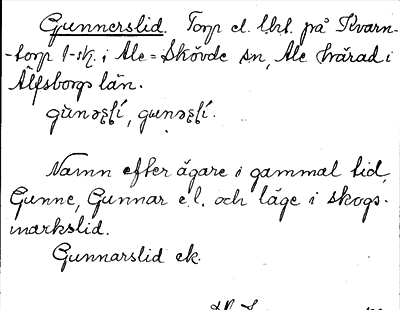 Gunnerslid. Torp el. lht. på Kvarn-
-torp 1-sk. i Ale=Skövde sn, Ale härad i
Älfsborgs län.
gùnəʂlí, gunəʂlí.
Namn efter ägare i gammal tid,
Gunne, Gunnar e.l. och läge i skogs-
markslid.
Gunnarslid ek.